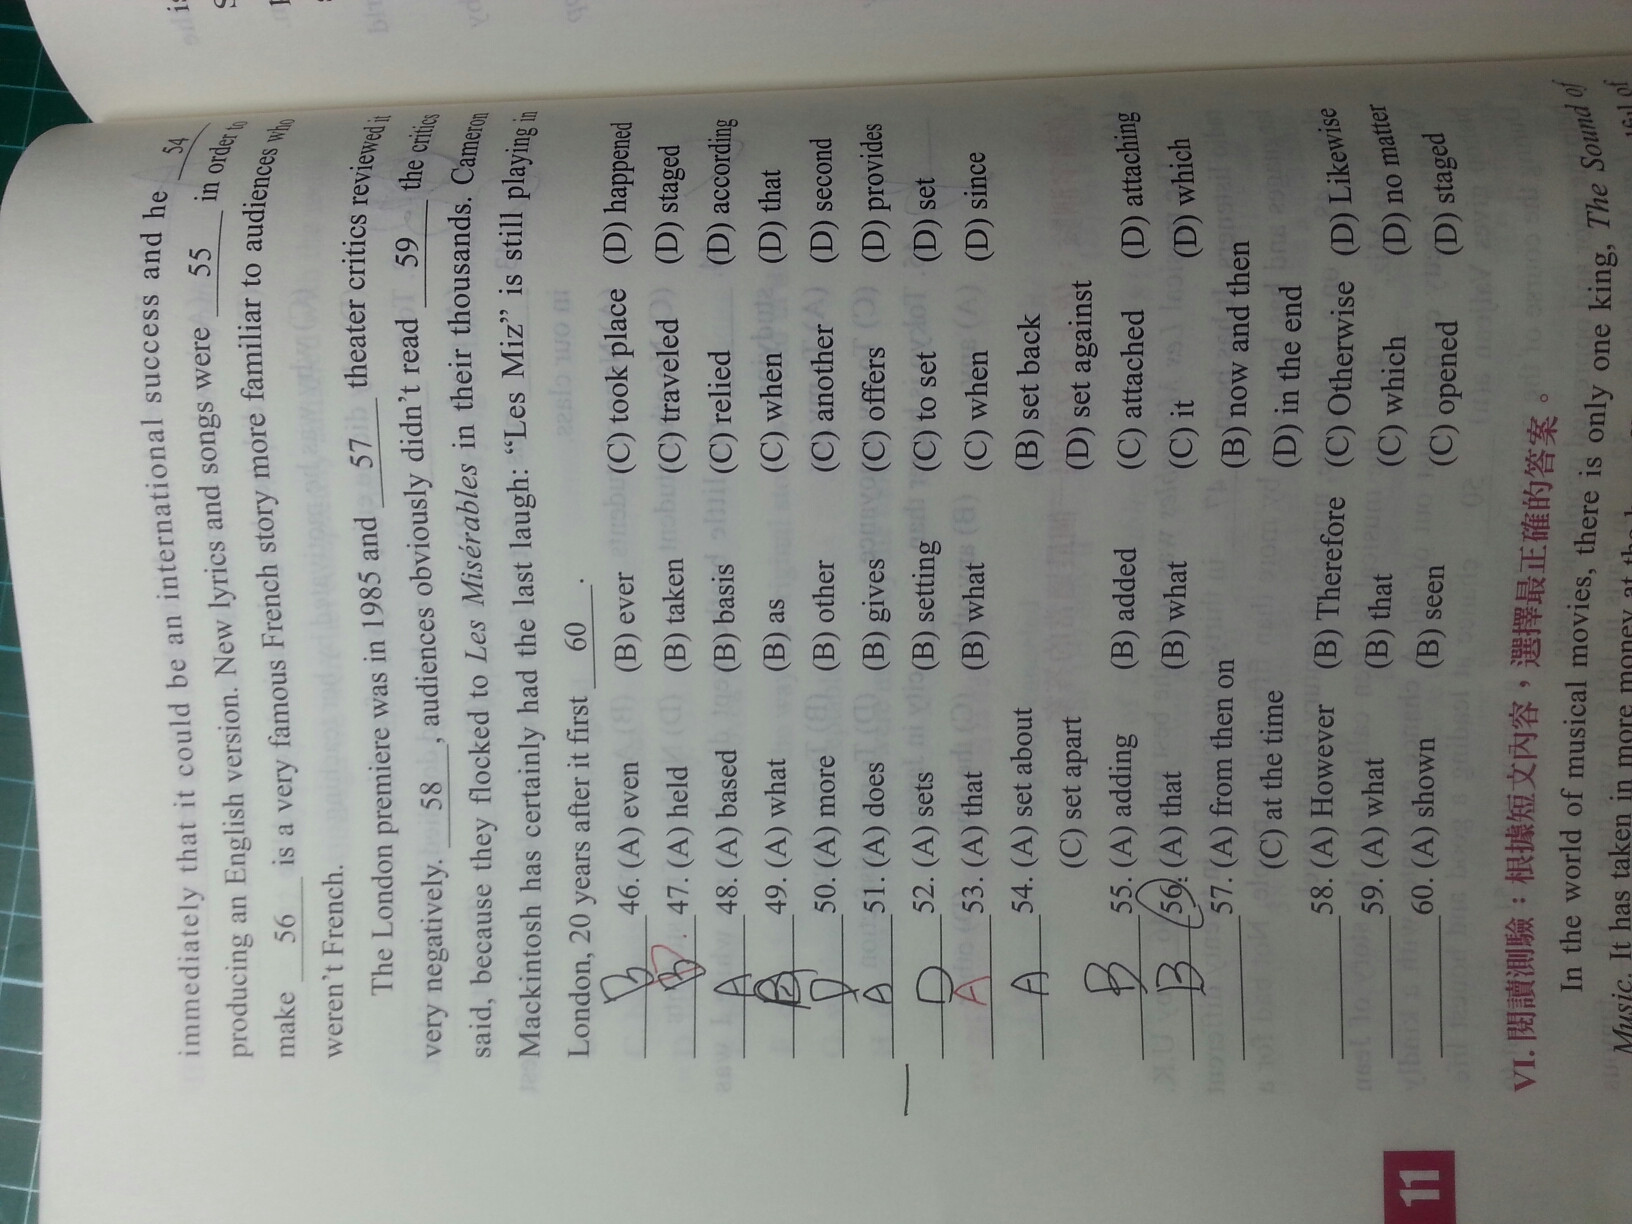 immediately that it could be an international success and he 54
producing an English version. New lyrics and songs were 55 in order to
make 56 is a very famous French story more familiar to audiences who
weren't French.
The London premiere was in 1985 and 57 theater critics reviewed it
very negatively. 58 , audiences obviously didn't read 59 the critics
said, because they flocked to Les Misérables in their thousands. Cameron
Mackintosh has certainly had the last laugh: "Les Miz" is still playing in
London, 20 years after it first 60 .
B 46. (A) even (B) ever (C) took place (D) happened
47. (A) held (B) taken (C) traveled (D) staged
A 48. (A) based (B) basis (C) relied (D) according
B 49. (A) what (B) as (C) when (D) that
D 50. (A) more (B) other (C) another (D) second
A 51. (A) does (B) gives (C) offers (D) provides
D 52. (A) sets (B) setting (C) to set (D) set
A 53. (A) that (B) what (C) when (D) since
A 54. (A) set about (B) set back
(C) set apart (D) set against
B 55. (A) adding (B) added (C) attached (D) attaching
B 56. (A) that (B) what (C) it (D) which
57. (A) from then on (B) now and then
(C) at the time (D) in the end
58. (A) However (B) Therefore (C) Otherwise (D) Likewise
59. (A) what (B) that (C) which (D) no matter
60. (A) shown (B) seen (C) opened (D) staged
VI. 閱讀測驗：根據短文內容，選擇最正確的答案。
In the world of musical movies, there is only one king, The Sound of
Music. It has taken in more money at the
11